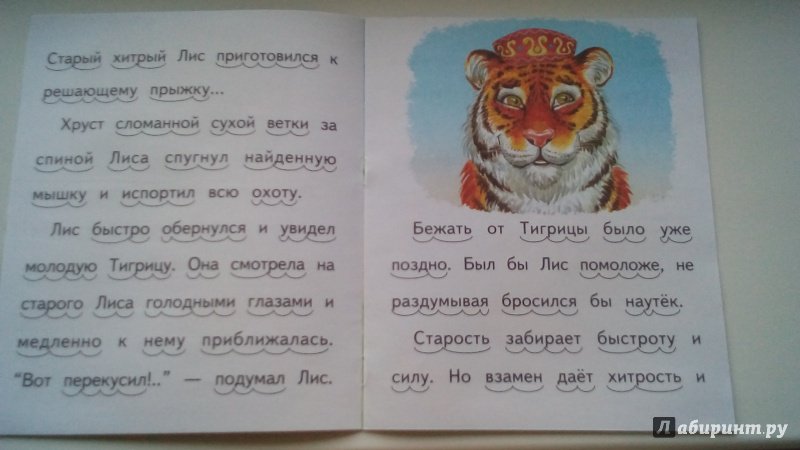 Старый хитрый Лис приготовился к
решающему прыжку...
Хруст сломанной сухой ветки за
спиной Лиса спугнул найденную
мышку и испортил всю охоту.
Лис быстро обернулся и увидел
молодую Тигрицу. Она смотрела на
старого Лиса голодными глазами и
медленно к нему приближалась.
"Вот перекусил!.." — подумал Лис.
Бежать от Тигрицы было уже
поздно. Был бы Лис помоложе, не
раздумывая бросился бы наутёк.
Старость забирает быстроту и
силу. Но взамен даёт хитрость и
Лабиринт.ру